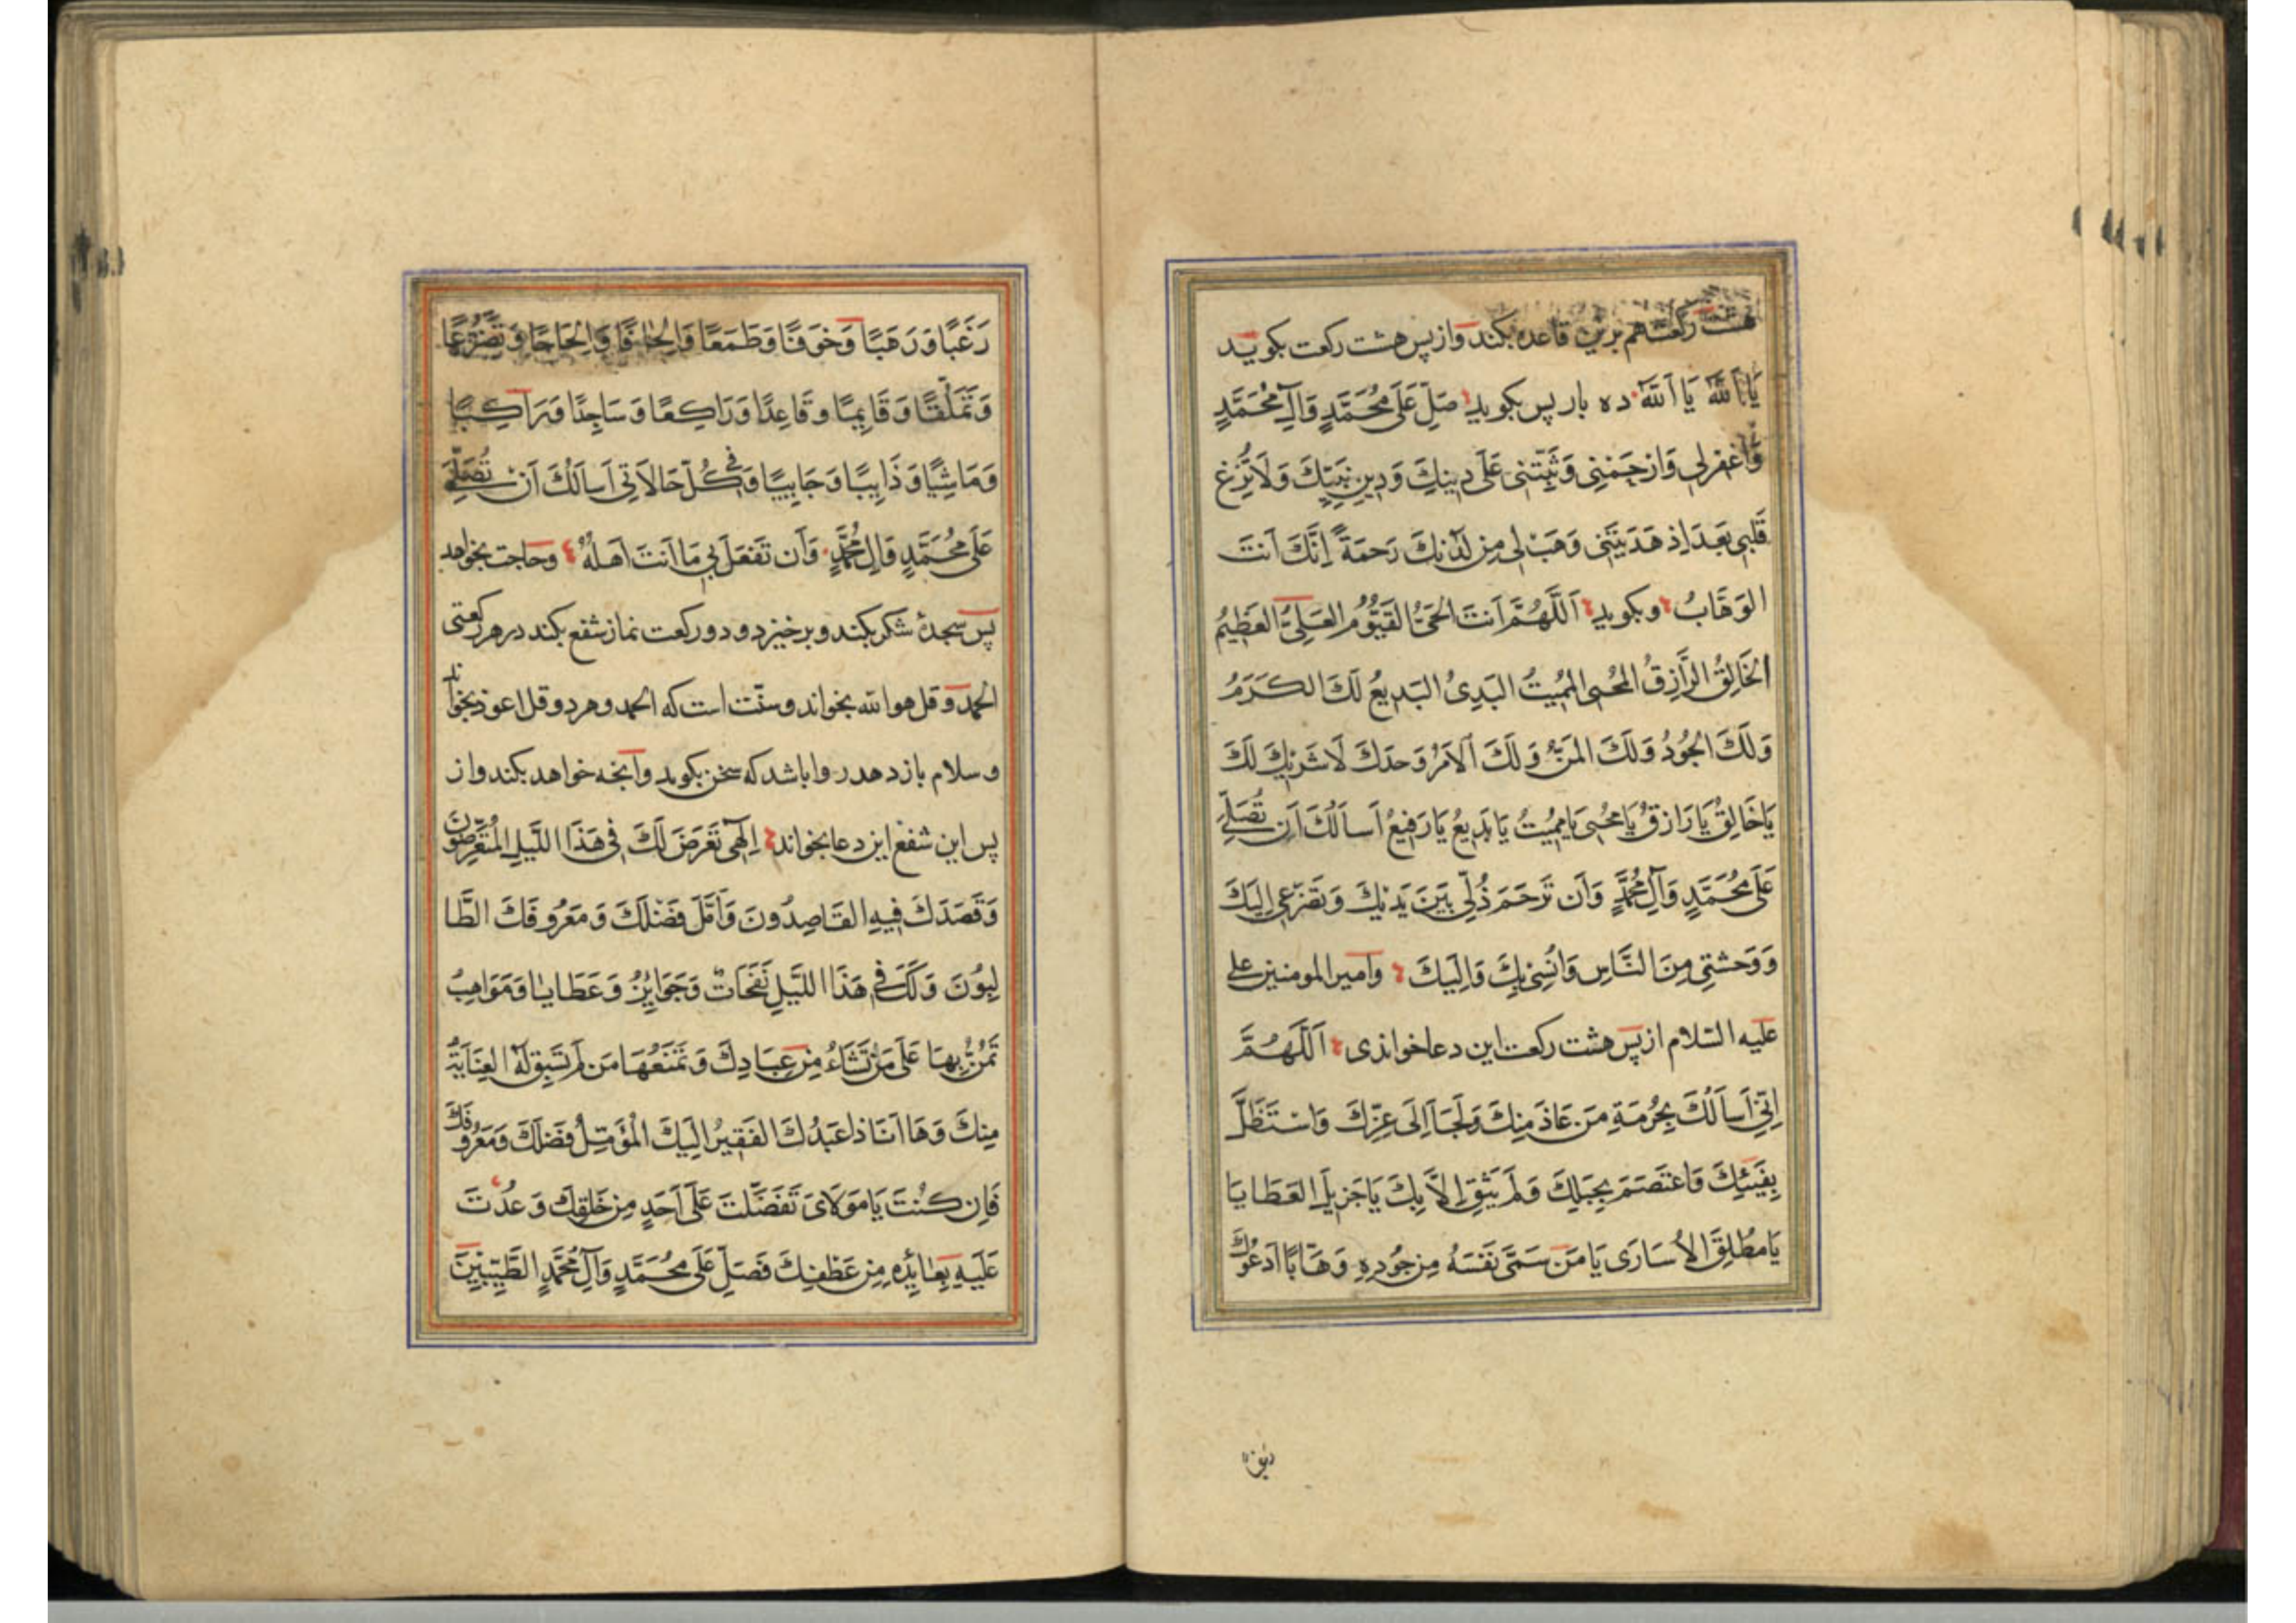 هشت رکعت هم برین قاعده بکند وازپس هشت رکعت بکوید
یَا اَللهُ یَا اَللهُ ده بار پس بکوید صَلِّ عَلَی مُحَمَّدٍ وَآلِ مُحَمَّدٍ
وَاغفِرلِی وَارحَمنِی وَثَبِّتنِی عَلَی دِینِكَ وَدِینِ نَبِیِّكَ وَلَا تُزِغ
قَلبِی بَعدَ اِذ هَدَیتَنِی وَهَب لِی مِن لَدُنكَ رَحمَةً اِنَّكَ اَنتَ
الوَهَّابُ وبکوید اَللَّهُمَّ اَنتَ الحَیُّ القَیُّومُ العَلِیُّ العَظِیمُ
الخَالِقُ الرَّازِقُ المُحیِی المُمِیتُ البَدِیُٔ البَدِیعُ لَكَ الكَرَمُ
وَلَكَ الجُودُ وَلَكَ المَنُّ وَلَكَ الاَمرُ وَحدَكَ لَا شَرِیكَ لَكَ
یَا خَالِقُ یَا رَازِقُ یَا مُحیِی یَا مُمِیتُ یَا بَدِیعُ یَا رَفِیعُ اَسأَلُكَ اَن تُصَلِّیَ
عَلَی مُحَمَّدٍ وَآلِ مُحَمَّدٍ وَاَن تَرحَمَ ذُلِّی بَینَ یَدَیكَ وَتَضَرُّعِی اِلَیكَ
وَوَحشَتِی مِنَ النَّاسِ وَاُنسِی بِكَ وَاِلَیكَ وامیر المومنین علی
علیه السلام از پس هشت رکعت این دعا خواندی اَللَّهُمَّ
اِنِّی اَسأَلُكَ بِحُرمَةِ مَن عَاذَ مِنكَ وَلَجَأَ اِلَی عِزِّكَ وَاستَظَلَّ
بِفَیئِكَ وَاعتَصَمَ بِحَبلِكَ وَلَم یَثِق اِلَّا بِكَ یَا جَزِیلَ العَطَایَا
یَا مُطلِقَ الاُسَارَی یَا مَن سَمَّی نَفسَهُ مِن جُودِهِ وَهَّابًا اَدعُوكَ
رَغَبًا وَرَهَبًا وَخَوفًا وَطَمَعًا وَاِلحَافًا وَاِلحَاحًا وَتَضَرُّعًا
وَتَمَلُّقًا وَقَایِمًا وَقَاعِدًا وَرَاكِعًا وَسَاجِدًا وَرَاكِبًا
وَمَاشِیًا وَذَاهِبًا وَجَایِیًا وَفِی كُلِّ حَالَاتِی اَسأَلُكَ اَن تُصَلِّیَ
عَلَی مُحَمَّدٍ وَآلِ مُحَمَّدٍ وَاَن تَفعَلَ بِی مَا اَنتَ اَهلُهُ وحاجت بخواهد
پس سجدهٔ شکر بکند و برخیزد و دو رکعت نماز شفع بکند در هر رکعتی
الحمد و قل هو الله بخواند و سنّت است که الحمد و هر دو قل اعوذ بخواند
و سلام باز دهد روا باشد که سخن بکوید وآنچه خواهد بکند واز
پس این شفع این دعا بخواند اِلَهِی تَعَرَّضَ لَكَ فِی هَذَا اللَّیلِ المُتَعَرِّضُونَ
وَقَصَدَكَ فِیهِ القَاصِدُونَ وَاَمَّلَ فَضلَكَ وَمَعرُوفَكَ الطَّا
لِبُونَ وَلَكَ فِی هَذَا اللَّیلِ نَفَحَاتٌ وَجَوَایِزُ وَعَطَایَا وَمَوَاهِبُ
تَمُنُّ بِهَا عَلَی مَن تَشَاءُ مِن عِبَادِكَ وَتَمنَعُهَا مَن لَم تَسبِق لَهُ العِنَایَةُ
مِنكَ وَهَا اَنَا ذَا عَبدُكَ الفَقِیرُ اِلَیكَ المُؤَمِّلُ فَضلَكَ وَمَعرُوفَكَ
فَاِن كُنتَ یَا مَولَایَ تَفَضَّلتَ عَلَی اَحَدٍ مِن خَلقِكَ وَعُدتَ
عَلَیهِ بِعَائِدِهِ مِن عَطفِكَ فَصَلِّ عَلَی مُحَمَّدٍ وَآلِ مُحَمَّدٍ الطَّیِّبِینَ